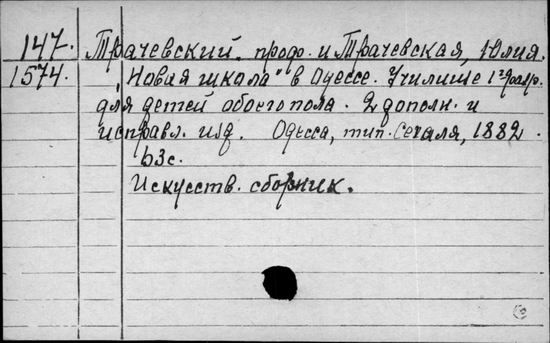 147. Трачевский. проф. и Трачевская, Юлия.
1574. „Новая школа" в Одессе. Училище 1го разр.
для детей обоего пола. 2 дополн. и
исправл. изд. Одесса, тип. Сегаля, 1882.
63 с.
Искусств. сборник.